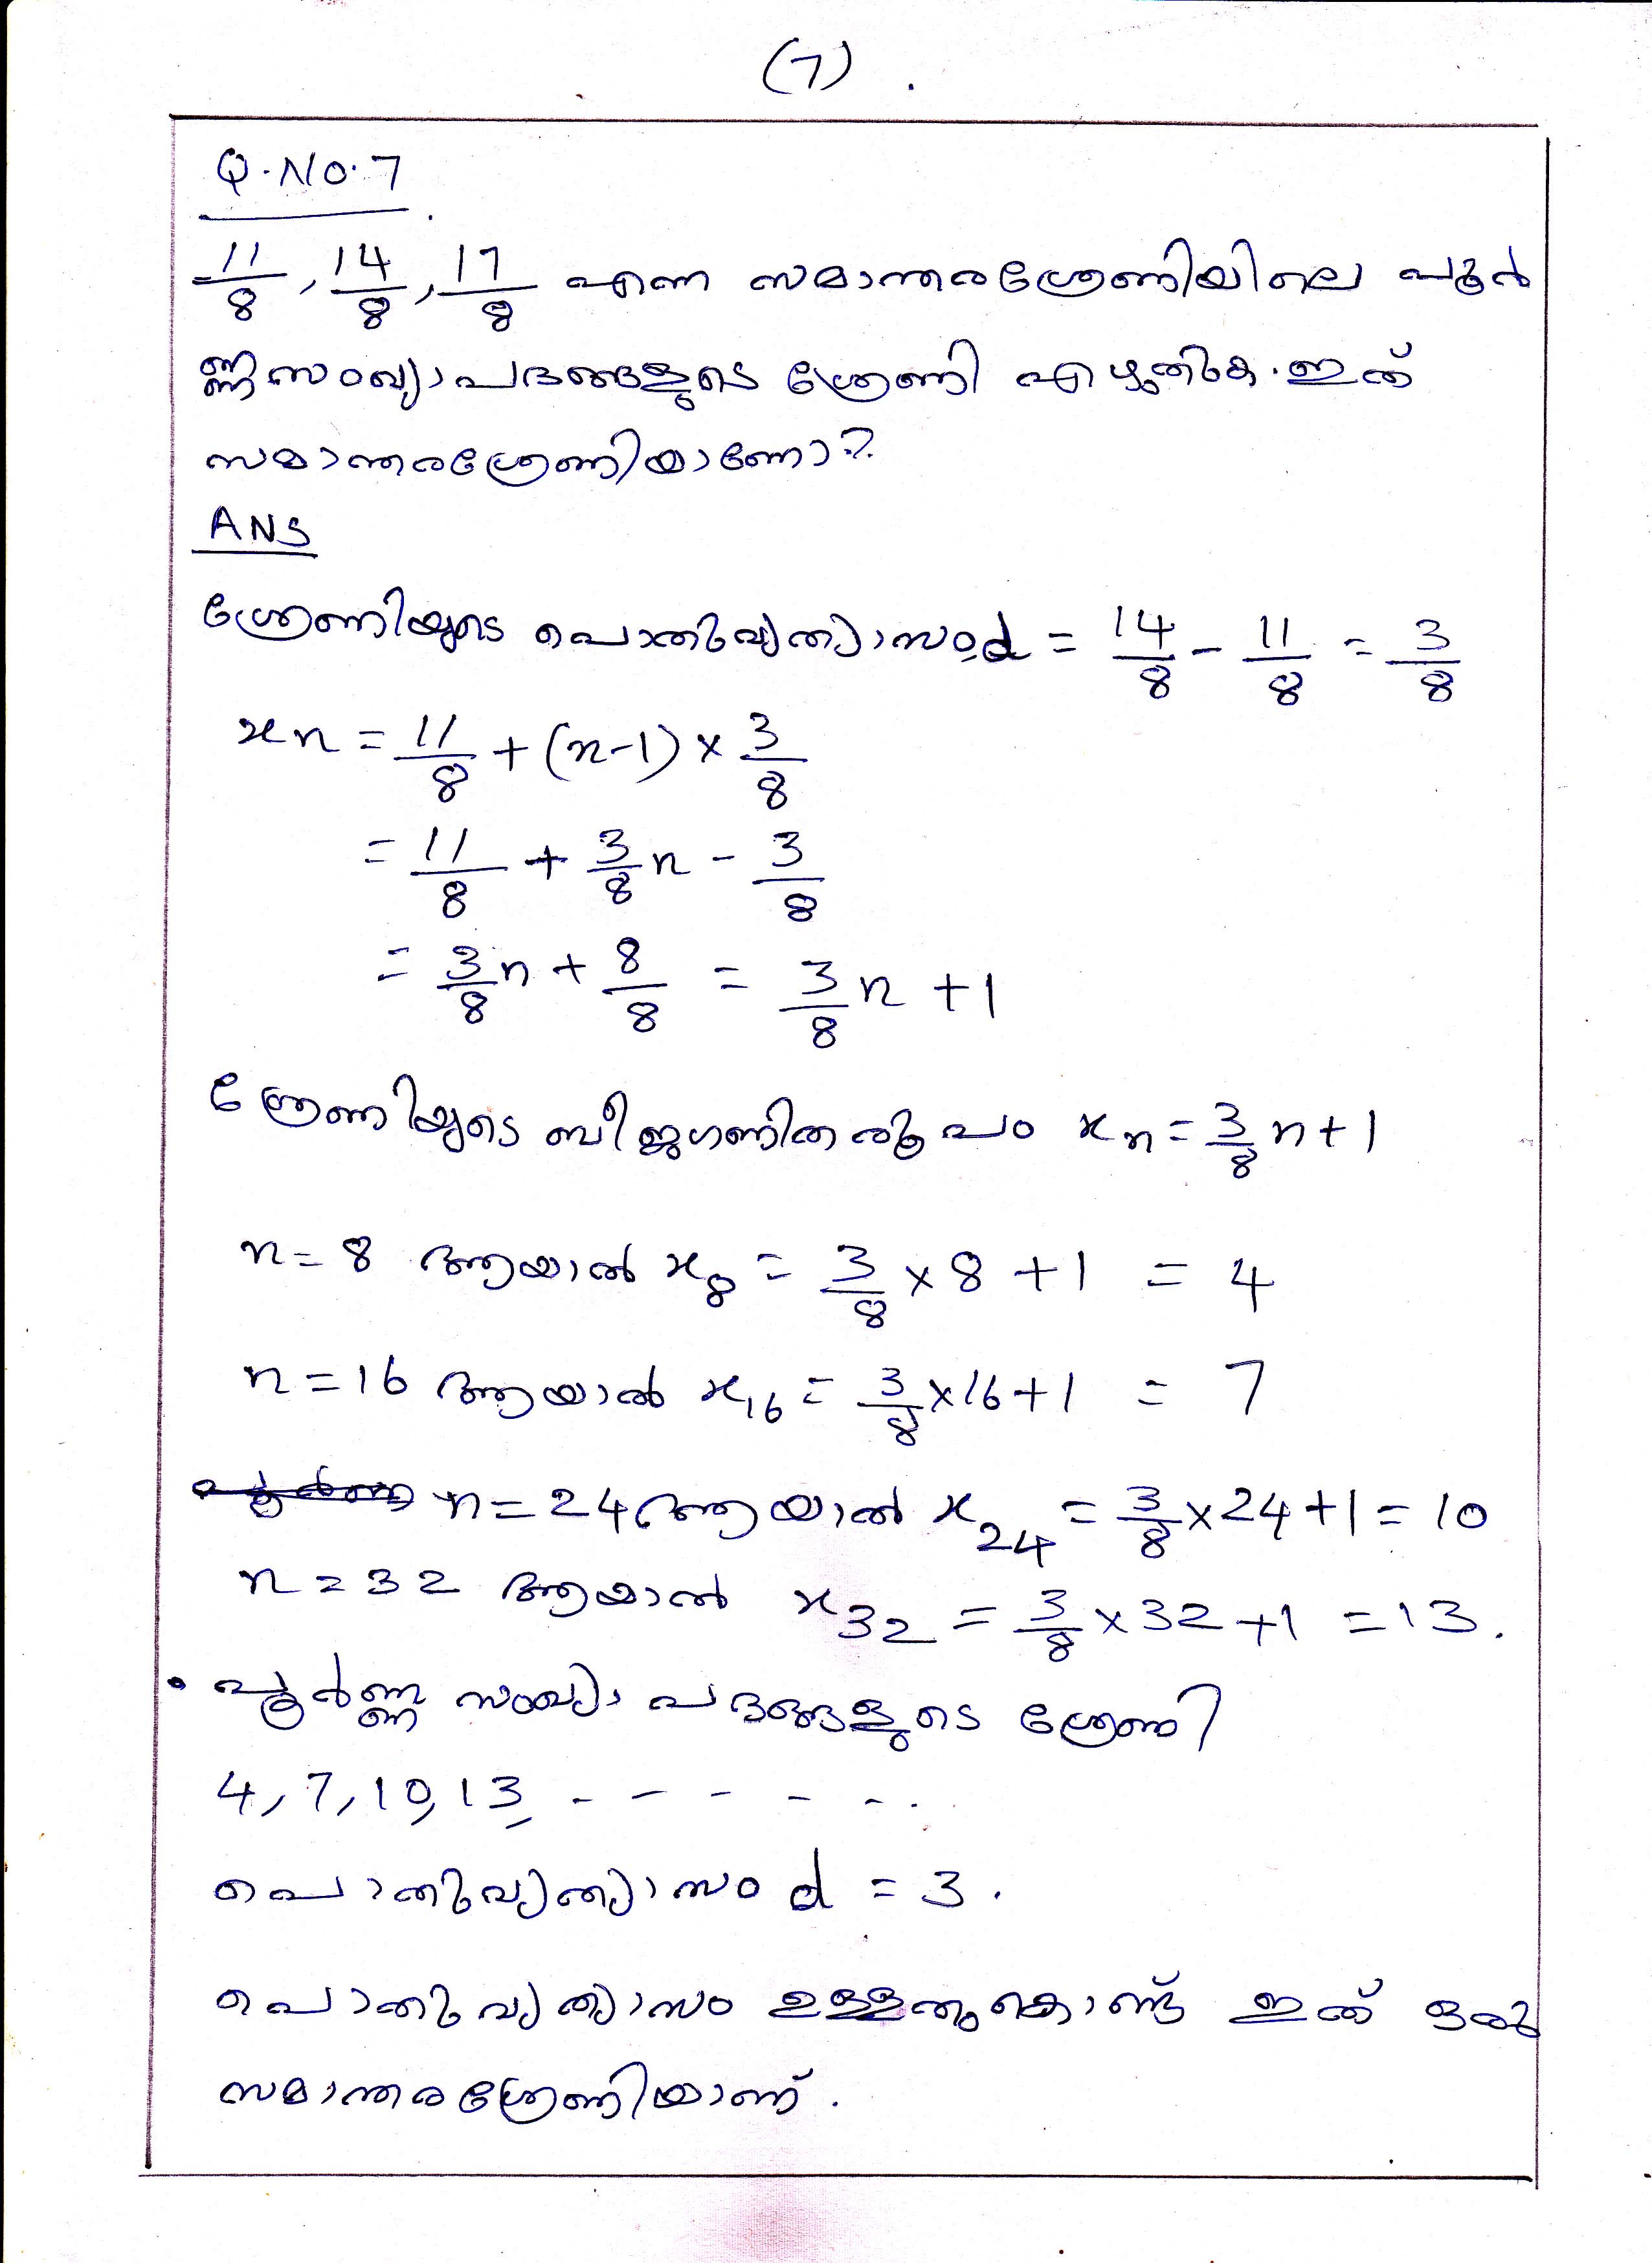 (7)
Q.No.7
11/8, 14/8, 17/8 എന്ന സമാന്തരശ്രേണിയിലെ പൂർ
ണ്ണസംഖ്യാപദങ്ങളുടെ ശ്രേണി എഴുതുക. ഇത്
സമാന്തരശ്രേണിയാണോ?
ANS
ശ്രേണിയുടെ പൊതുവ്യത്യാസം, d = 14/8 - 11/8 = 3/8
xn = 11/8 + (n-1) × 3/8
= 11/8 + 3/8 n - 3/8
= 3/8 n + 8/8 = 3/8 n + 1
ശ്രേണിയുടെ ബീജഗണിതരൂപം xn = 3/8 n + 1
n = 8 ആയാൽ x8 = 3/8 × 8 + 1 = 4
n = 16 ആയാൽ x16 = 3/8 × 16 + 1 = 7
n = 24 ആയാൽ x24 = 3/8 × 24 + 1 = 10
n = 32 ആയാൽ x32 = 3/8 × 32 + 1 = 13.
• പൂർണ്ണ സംഖ്യാ പദങ്ങളുടെ ശ്രേണി
4, 7, 10, 13, - - - - - .
പൊതുവ്യത്യാസം d = 3.
പൊതുവ്യത്യാസം ഉള്ളതുകൊണ്ട് ഇത് ഒരു
സമാന്തരശ്രേണിയാണ്.